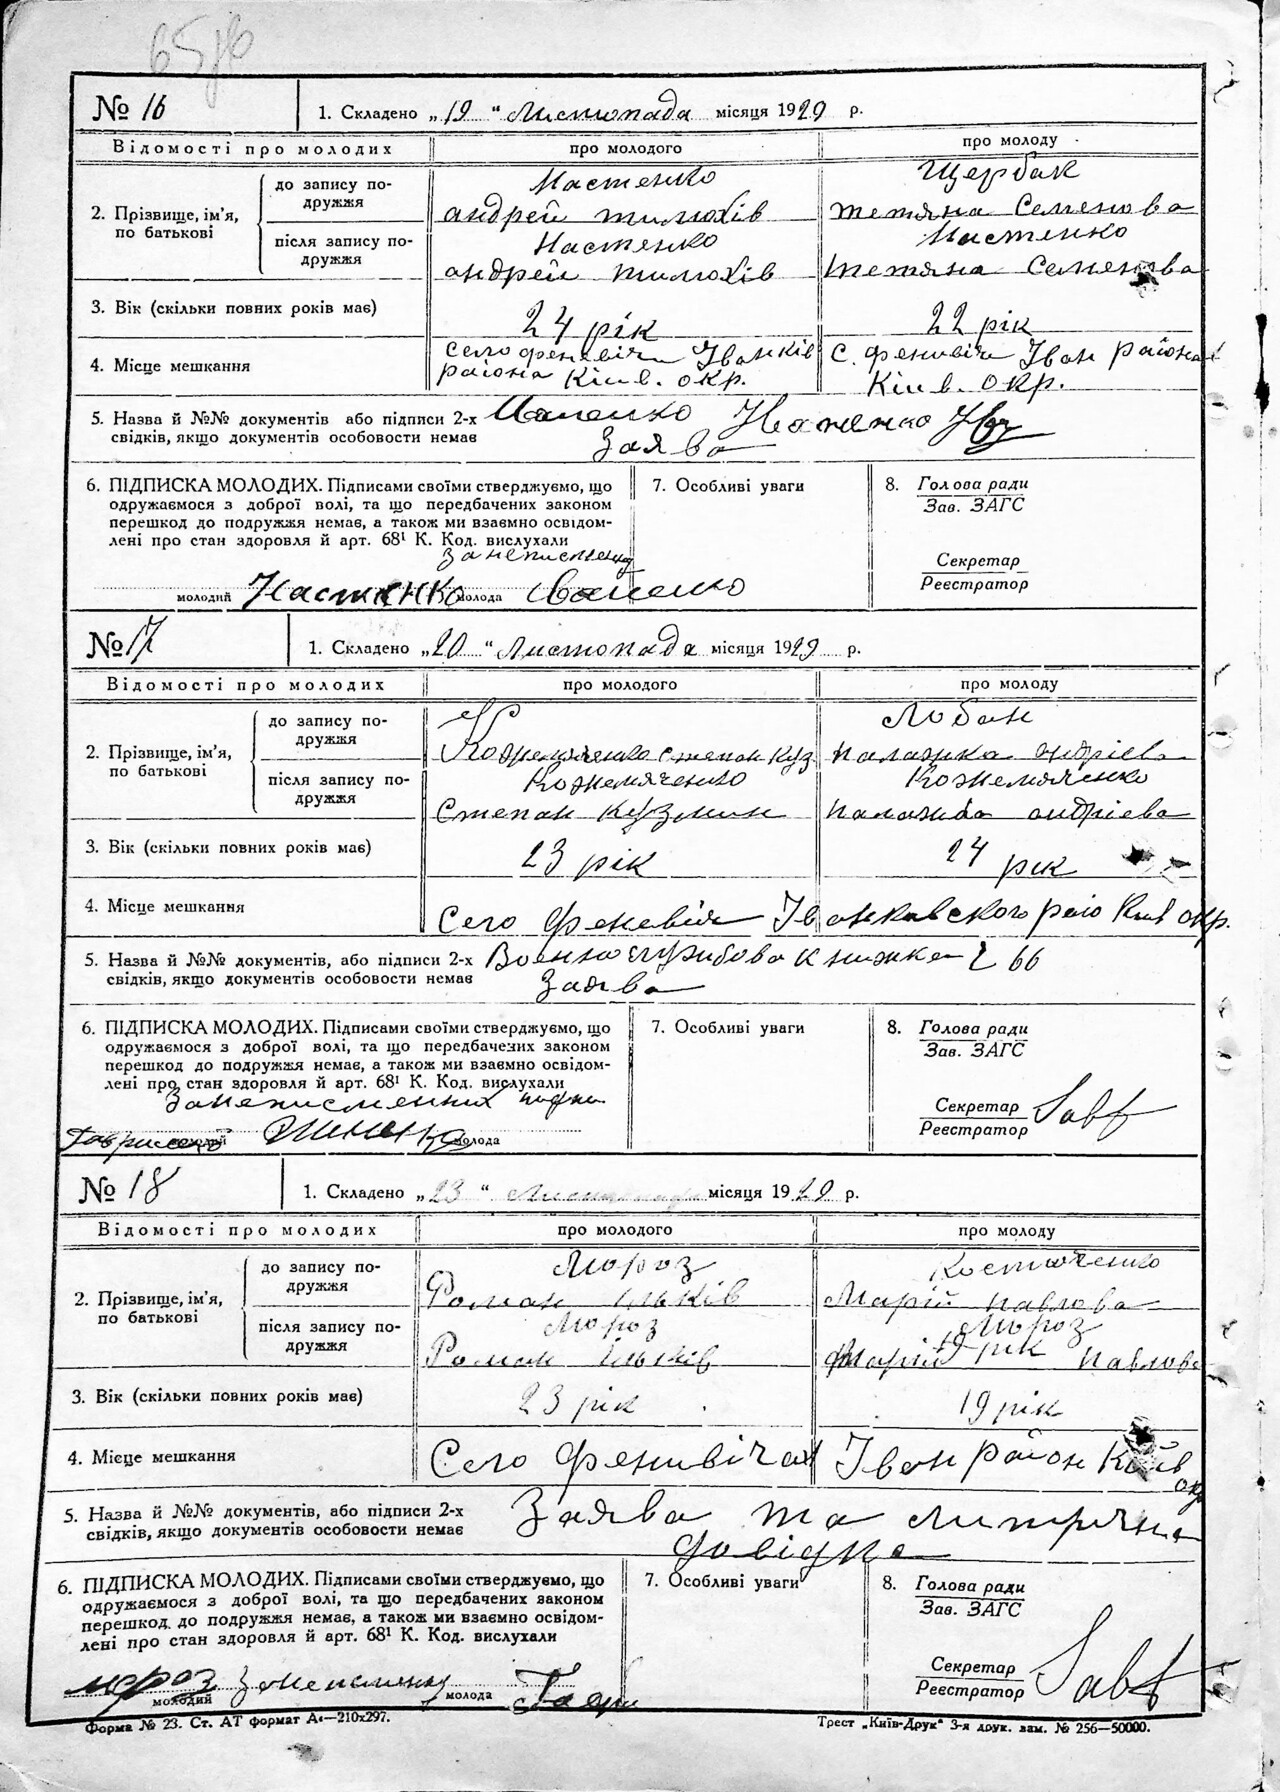 № 16
1. Складено „19“ Листопада місяця 1929 р.
Відомості про молодих
про молодого
про молоду
2. Прізвище, ім'я, по батькові
до запису подружжя
Настенко
андрей тимохів
Щербак
тетяна Семенова
після запису подружжя
Настенко
андрей тимохів
Настенко
тетяна Семенова
3. Вік (скільки повних років має)
24 рік
22 рік
4. Місце мешкання
село феневичи Іванків
района Київ. окр.
с. феневичи Іван района
Київ. окр.
5. Назва й №№ документів або підписи 2-х
свідків, якщо документів особовости немає
Заява
6. ПІДПИСКА МОЛОДИХ. Підписами своїми стверджуємо, що
одружаємося з доброї волі, та що передбачених законом
перешкод до подружжя немає, а також ми взаємно освідом-
лені про стан здоровля й арт. 68¹ К. Код. вислухали
молодий Настенко молода
7. Особливі уваги
8. Голова ради
Зав. ЗАГС
Секретар
Реєстратор
№ 17
1. Складено „20“ Листопада місяця 1929 р.
Відомості про молодих
про молодого
про молоду
2. Прізвище, ім'я,
по батькові
до запису по-
дружжя
Кожемяченко степан Куз
Лобан
палажка андріева
після запису по-
дружжя
Кожемяченко
Степан Кузмин
Кожемяченко
палажка андріева
3. Вік (скільки повних років має)
23 рік
24 рік
4. Місце мешкання
Село феневичи Іванкивского раіо Київ окр.
5. Назва й №№ документів, або підписи 2-х
свідків, якщо документів особовости немає
книжка 66
Заява
6. ПІДПИСКА МОЛОДИХ. Підписами своїми стверджуємо, що
одружаємося з доброї волі, та що передбачених законом
перешкод до подружжя немає, а також ми взаємно освідом-
лені про стан здоровля й арт. 68¹ К. Код. вислухали
молода
7. Особливі уваги
8. Голова ради
Зав. ЗАГС
Секретар
Реєстратор
№ 18
1. Складено „23“ Листопада місяця 1929 р.
Відомості про молодих
про молодого
про молоду
2. Прізвище, ім'я,
по батькові
до запису по-
дружжя
Мороз
Роман ільків
Костюченко
Марій павлова
після запису по-
дружжя
Мороз
Роман ільків
Мороз
Марій павлова
3. Вік (скільки повних років має)
23 рік
19 рік
4. Місце мешкання
Село Феневичах Іван район Київ
окр
5. Назва й №№ документів, або підписи 2-х
свідків, якщо документів особовости немає
Заява та
довідка
6. ПІДПИСКА МОЛОДИХ. Підписами своїми стверджуємо, що
одружаємося з доброї волі, та що передбачених законом
перешкод до подружжя немає, а також ми взаємно освідом-
лені про стан здоровля й арт. 68¹ К. Код. вислухали
мороз
молодий
молода
7. Особливі уваги
8. Голова ради
Зав. ЗАГС
Секретар
Реєстратор
Форма № 23. Ст. АТ формат А4—210х297.
Трест „Київ-Друк“ 3-я друк. зам. № 256—50000.